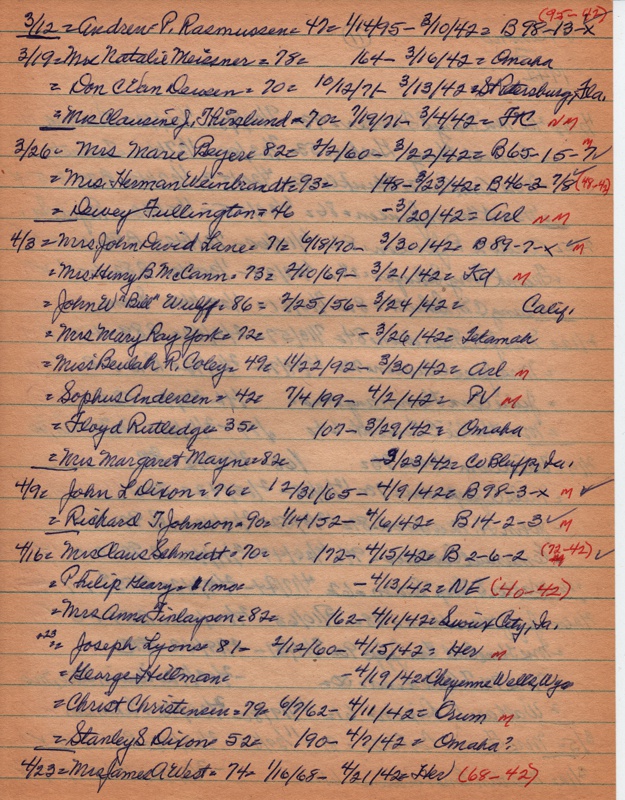 (95-42)
3/12 = Andrew P. Rasmussen = 47 = 1/14/95 - 3/10/42 = B 98-13-x
3/19 = Mrs Natalie Meissner = 78 = 164 - 3/16/42 = Omaha
= Don C Van Deusen = 70 = 10/12/71 - 3/13/42 = St Petersburg, Fla.
= Mrs Clausine J. Thislund = 70 = 7/19/71 - 3/4/42 = FK NM
3/26 = Mrs Marie Beyer = 82 = 2/2/60 - 3/22/42 = B65-15-7 ✓ M
= Mrs. Herman Weinbrandt = 93 = 148 - 3/23/42 = B46-2-7/8 ✓ (48-42)
= Dewey Fullington = 46 - 3/20/42 = Arl NM
4/3 = Mrs. John David Lane = 71 = 6/18/70 - 3/30/42 = B 89-7-x ✓ M
= Mrs Henry B McCann = 73 = 2/10/69 - 3/21/42 = Kd M
= John W "Bill" Wulff = 86 = 2/25/56 - 3/24/42 = Calif.
= Mrs Mary Ray York = 72 = - 3/26/42 = Tekamah
= Miss Beulah R. Coley = 49 = 11/22/92 - 3/30/42 = Arl M
= Sophus Andersen = 42 = 7/4/99 - 4/2/42 = PV M
= Floyd Rutledge = 35 = 107 - 3/29/42 = Omaha
= Mrs Margaret Mayne = 82 = - 3/23/42 = Co Bluffs, Ia.
4/9 = John L Dixon = 76 = 12/31/65 - 4/9/42 = B98-3-x M ✓
= Richard T. Johnson = 90 = 1/14/52 - 4/6/42 = B14-2-3 ✓ M
4/16 = Mrs Claus Schmidt = 70 = 172 - 4/15/42 = B 2-6-2 (72-42) ✓
= Philip Geary = 11 mo = - 4/13/42 = NE (40-42)
= Mrs Anna Finlayson = 82 = 162 - 4/11/42 = Sioux City, Ia.
+23 = Joseph Lyons = 81 - 2/12/60 - 4/15/42 = Her M
= George Hillman = - 4/19/42 Cheyenne Wells, Wyo
= Christ Christensen = 79 = 6/7/62 - 4/11/42 = Orum M
= Stanley S Dixon = 52 = 190 - 4/7/42 = Omaha?
4/23 = Mrs James A West = 74 = 1/16/68 - 4/21/42 = Her (68-42)